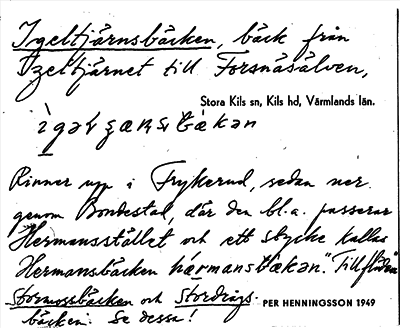 Igeltjärnsbäcken, bäck från
Igeltjärnet till Forsnäsälven,
Stora Kils sn, Kils hd, Värmlands län.
Rinner upp i Frykerud, sedan ner
genom Bondestad, där den bl.a. passerar
Hermansstället och ett stycke kallas
Hermansbäcken hármansbækən. Tillflöden
Stormossbäcken och Stordings-
PER HENNINGSSON 1949
bäcken. Se dessa!